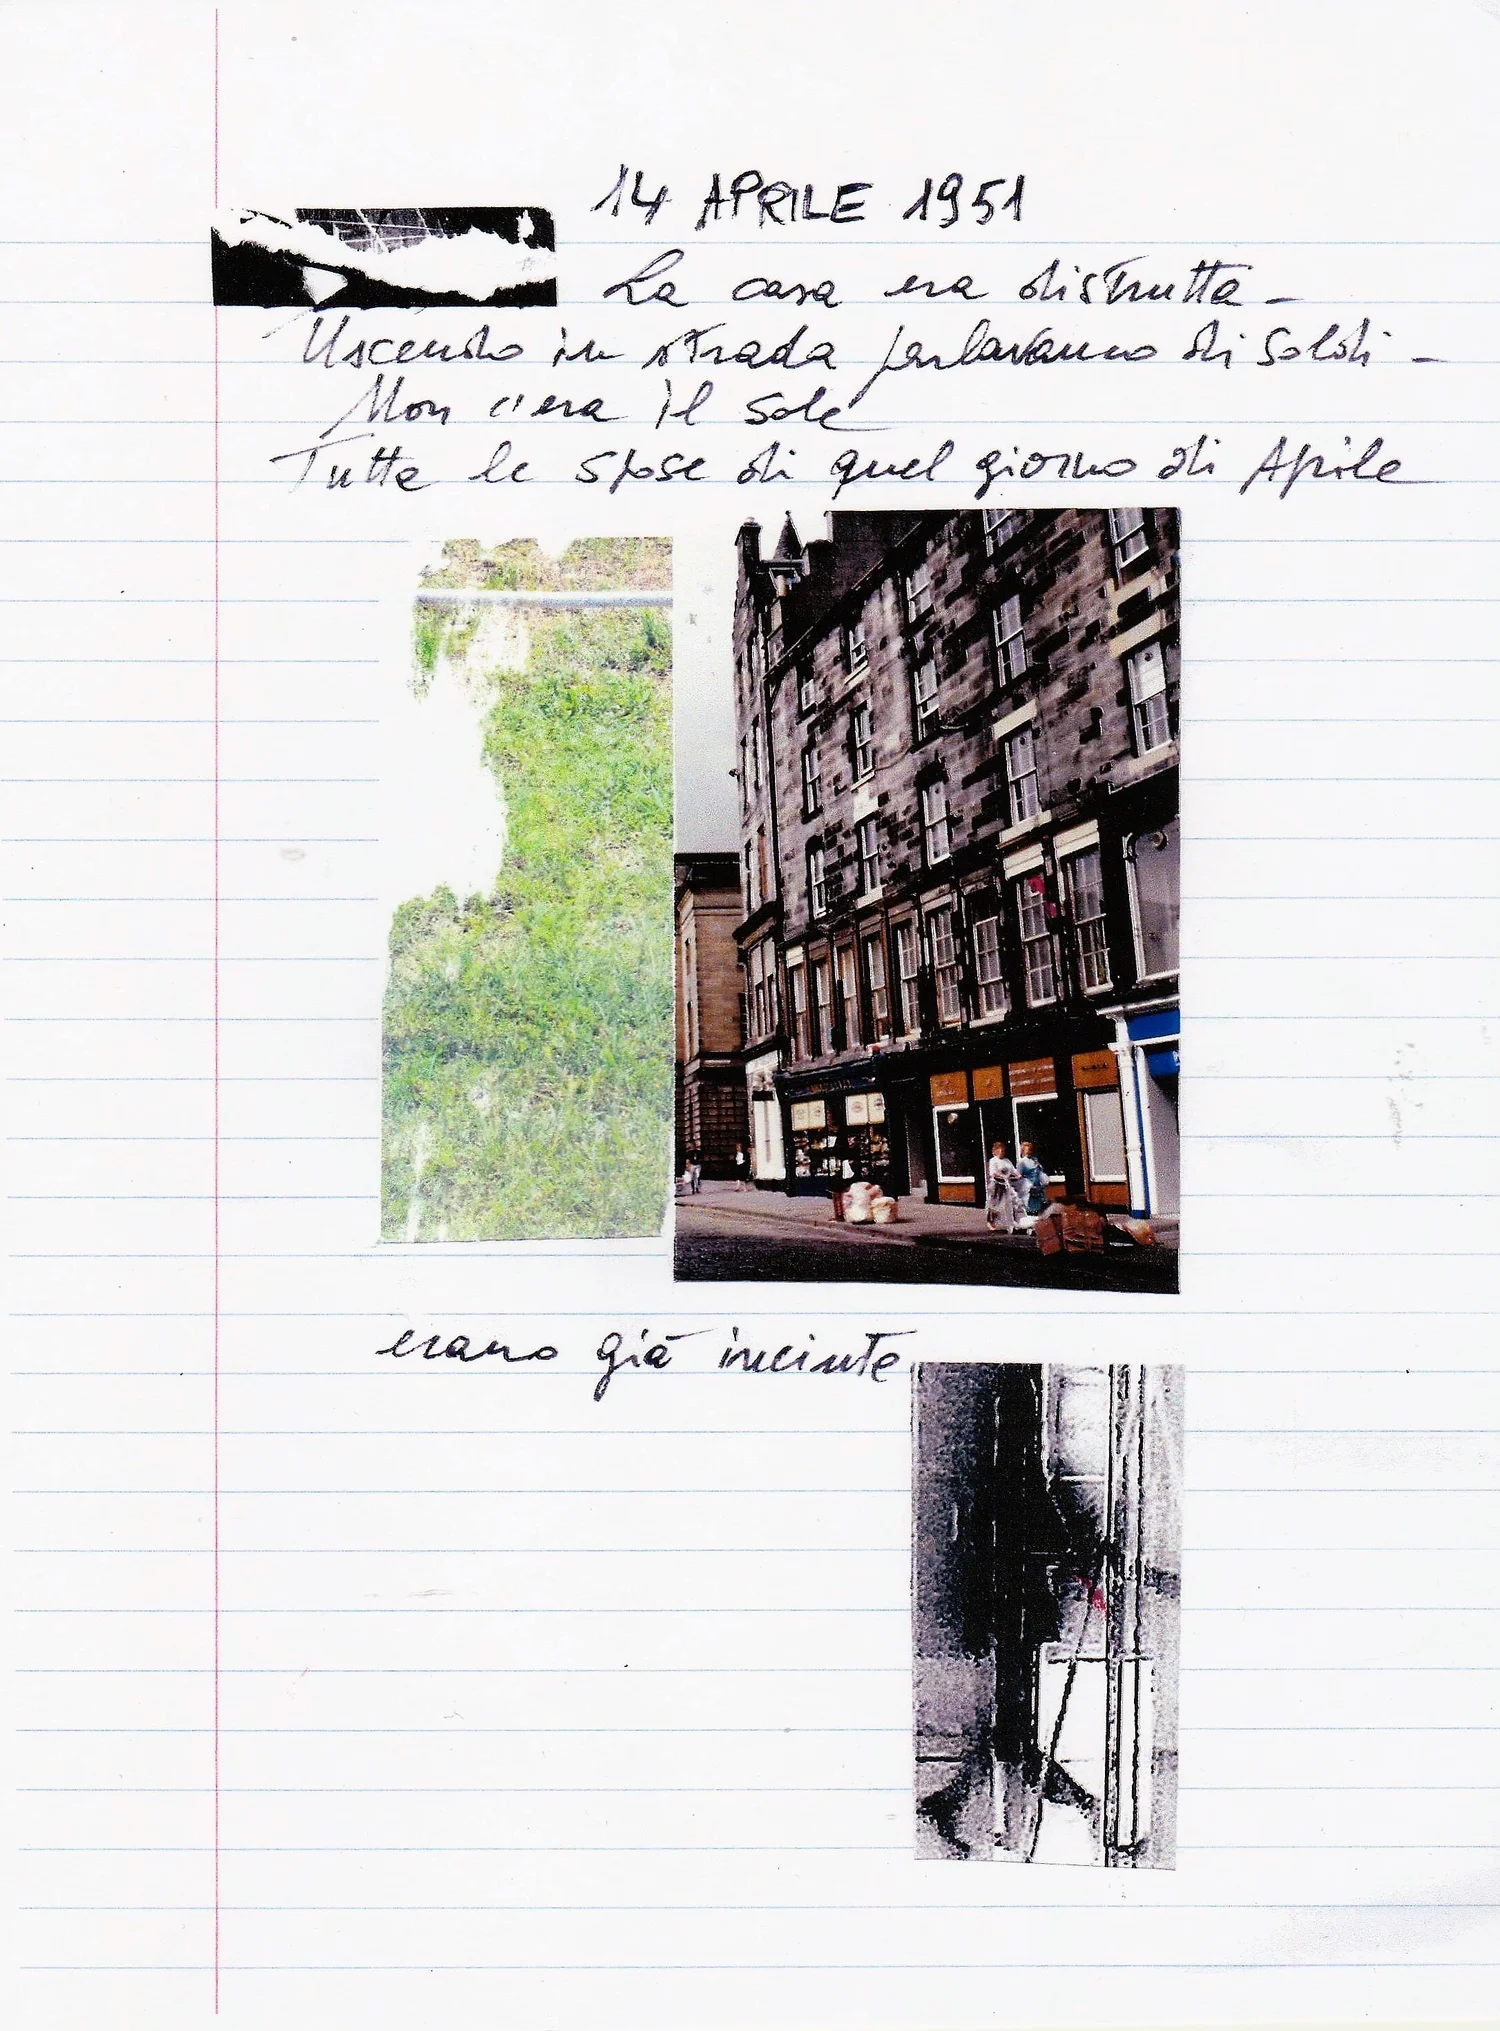 14 APRILE 1951
La casa era distrutta -
Uscendo in strada parlavanno di soldi -
Non c'era il sole
Tutte le spose di quel giorno di Aprile
erano già incinte